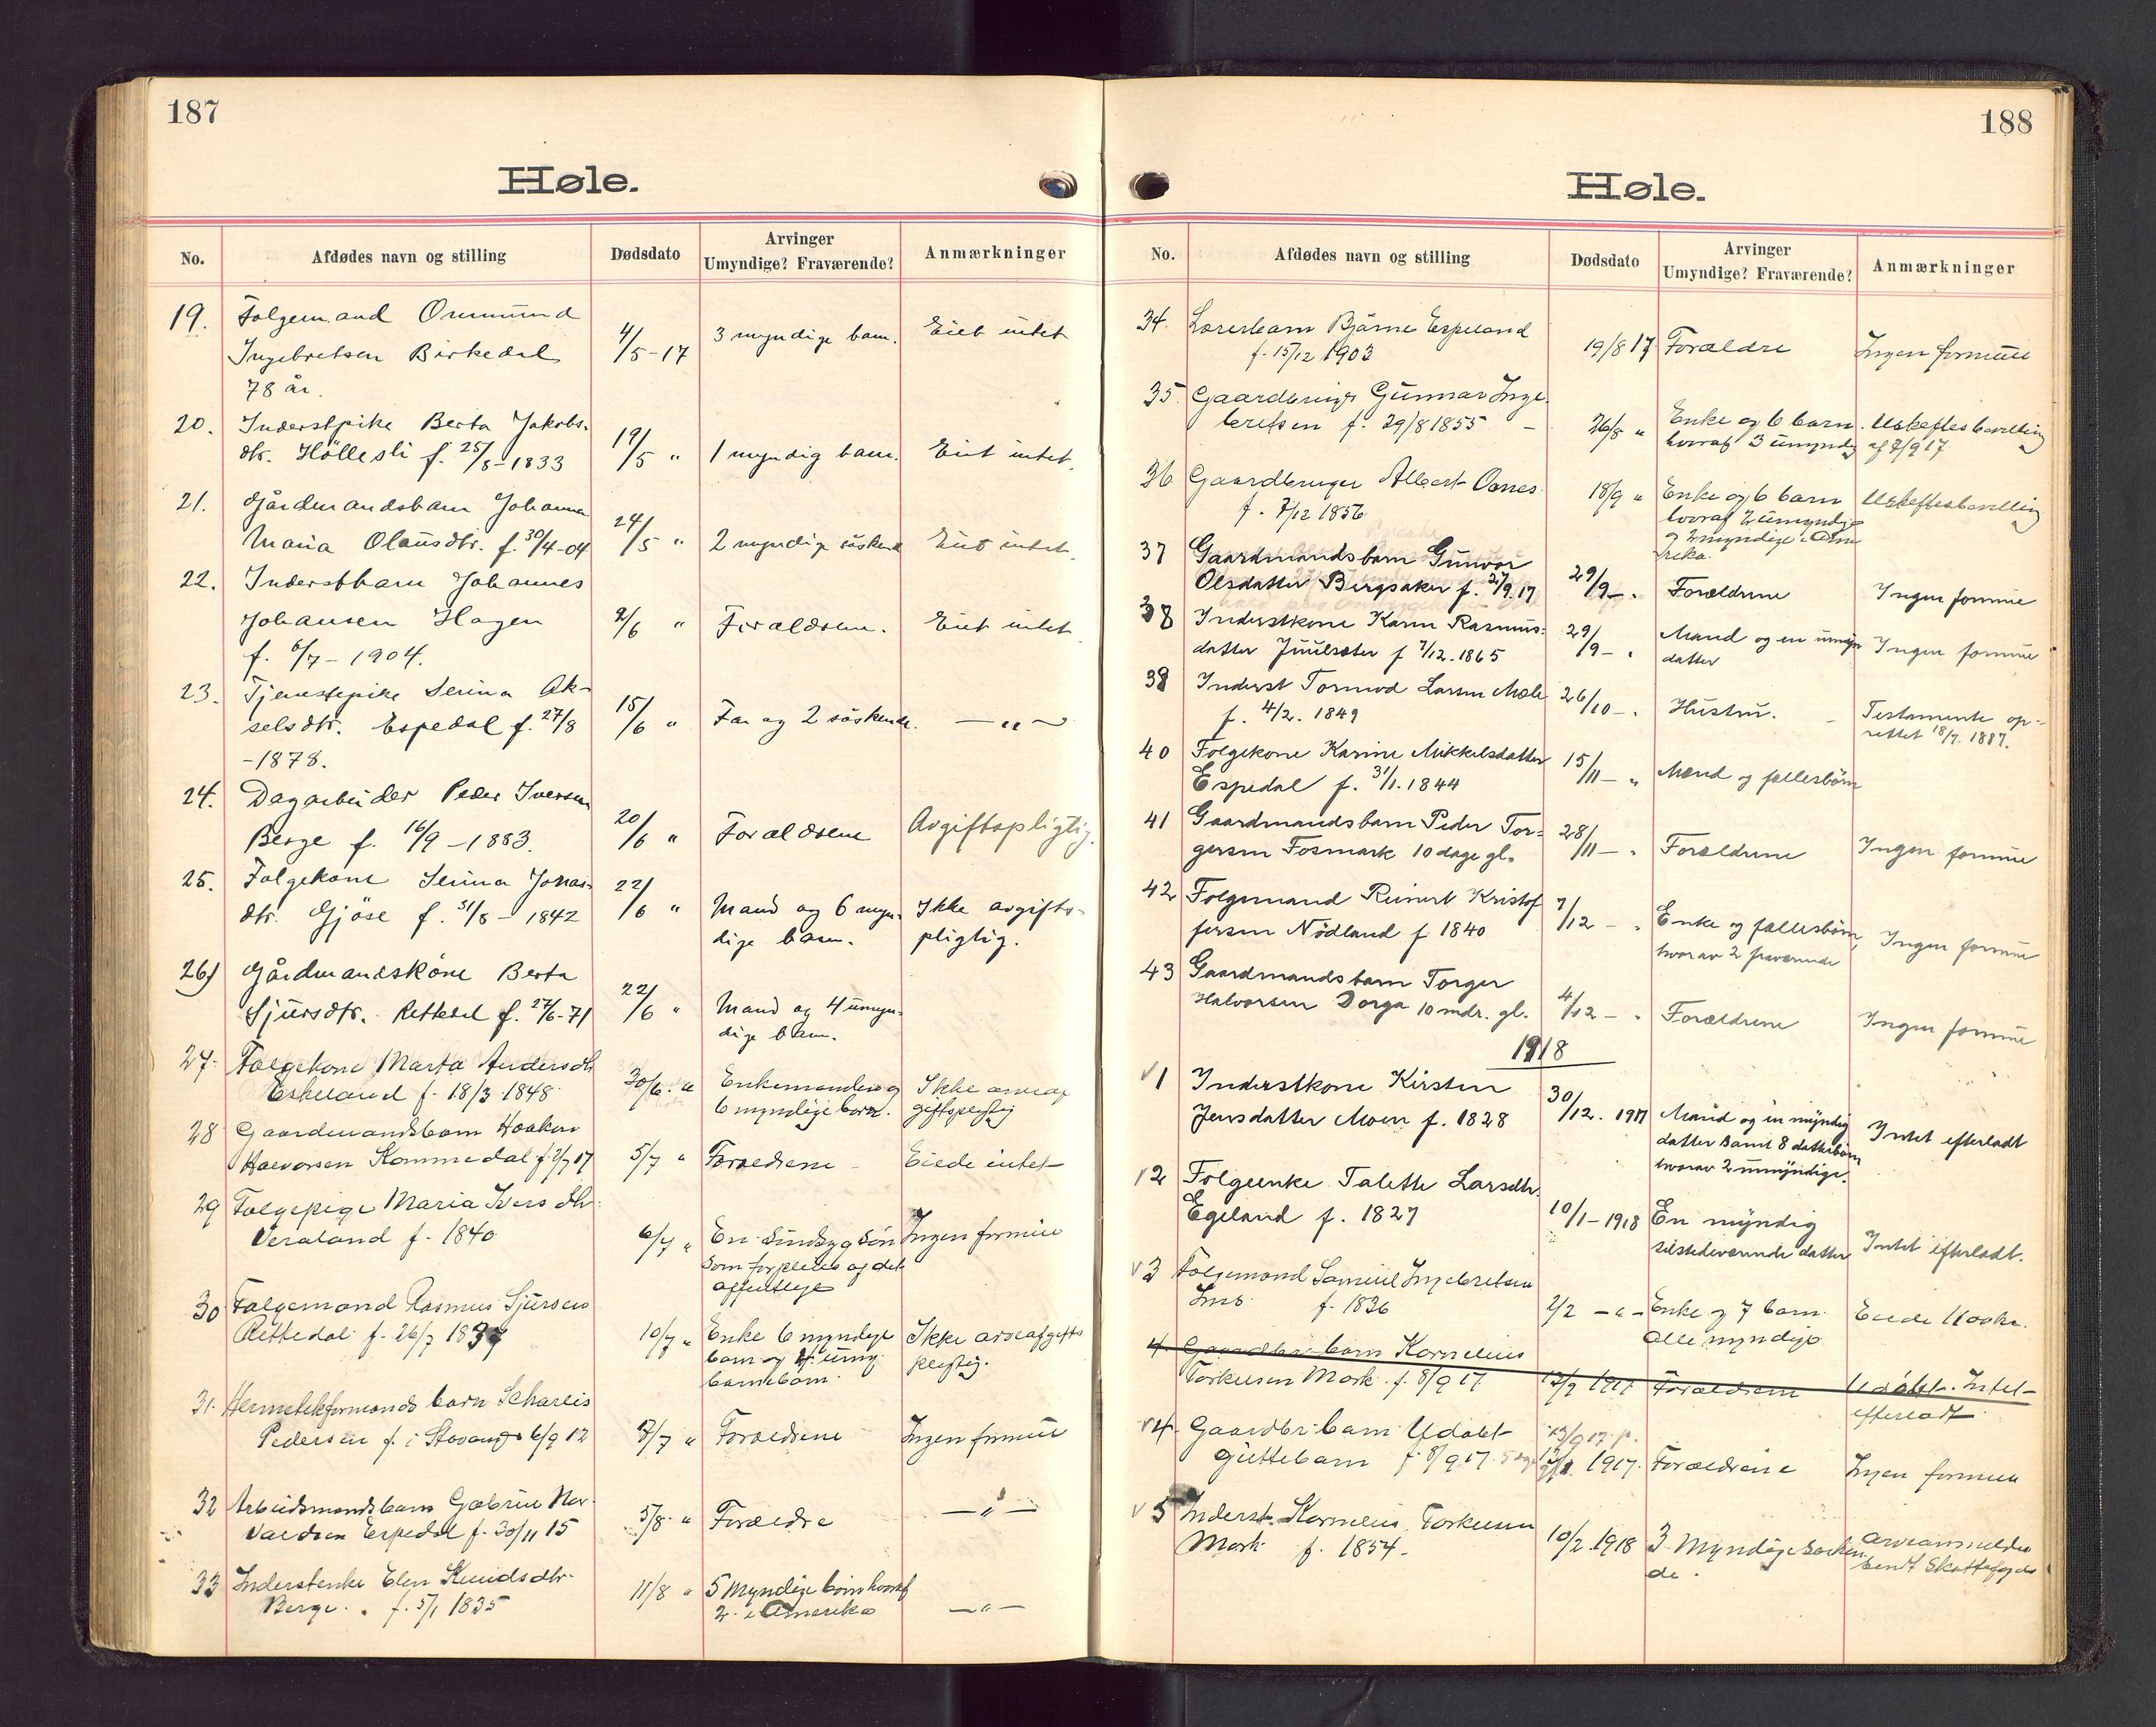 187
Høle.
No.
Afdødes navn og stilling
Dødsdato
Arvinger
Umyndige? Fraværende?
Anmærkninger
19.
Folgemand Ommund
Ingebretsen Birkedal
78 år.
4/5-17
3 myndige barn.
Eiet intet
20.
Inderstpike Berta Jakobs-
dtr. Höllesli f. 25/8-1833
19/5 "
1 myndig barn.
Eiet intet.
21.
Gårdmandsbarn Johanna
Maria Olausdtr. f. 30/4-04
24/5 "
2 myndige söskend
Eiet intet.
22.
Inderstbarn Johannes
Johansen Hagen
f. 6/7-1904.
2/6 "
Forældrene.
Eiet intet
23.
Tjenestepike Serina Ak-
selsdtr. Espedal f. 27/8
-1878.
15/6 "
Far og 2 söskende.
— " —
24.
Dagarbeider Peder Iversen
Berge f. 16/9-1883.
20/6 "
Forældrene
Avgiftspligtig.
25.
Folgekone Serina Jonas-
dtr. Gjöse f. 31/8-1842
22/6 "
Mand og 6 myn-
dige barn.
Ikke avgifts-
pligtig.
26)
Gårdmandskone Berta
Sjursdtr. Rettedal f. 27/6-71
22/6 "
Mand og 4 umyn-
dige barn.
27.
Folgekone Marta Andersdtr
Eskeland f. 18/3 1848
30/6. "
Enkemanden og
6 myndige børn.
Ikke arveaf
giftspligtig
28
Gaardmandsbarn Haakon
Halvorsen Kommedal f. 2/7 17
5/7 "
Forældrene -
Eiede intet
29
Folgepige Maria Iversdtr.
Veraland f. 1840
6/7 "
En sindsyg søn
som forpleies af det
offentlige
Ingen formue
30
Folgemand Rasmus Sjursen
Rettedal f. 26/7 1837
10/7 "
Enke 6 myndige
barn og 4 umy.
barnebørn.
Ikke arveafgifts
pligtig.
31.
Hermetikformands barn Scharlis
Pedersen f. i Stavanger 6/9 12
7/7 "
Forældrene
Ingen formue
32
Arbeidsmandsbarn Gabriel Har-
valdsen Espedal f. 30/11 15
5/8. "
Forældre
— " —
33
Inderstenke Elen Knudsdtr.
Berge. f. 5/1 1835
11/8 "
5 myndige børn hvoraf
2 i Amerika
— " —
188
Høle.
No.
Afdødes navn og stilling
Dødsdato
Arvinger
Umyndige? Fraværende?
Anmærkninger
34.
Lærerbarn Bjarne Espeland
f. 15/12 1903
19/8 17
Forældre
Ingen formue
35.
Gaardbruger Gunnar Inge-
bretsen f. 29/8 1855 -
26/8 "
Enke og 6 barn.
hvoraf 3 umyndig
Uskiftesbevilling
af 7/9 17
36
Gaardbruger Albert Oanes
f. 7/12 1856
18/9 "
Enke og 6 barn
hvoraf 2 umyndige
og 2 myndige i Ame
rika.
Uskiftesbevilling
37
Gaardmandsbarn Gunvor
Olsdatter Bergsaker f. 27/9. 17
29/9 - "
Forældrene
Ingen formue
38
Inderstkone Karen Rasmus-
datter Juulsæter f 7/12. 1865
29/9 - "
Mand og en umyn
datter
Ingen formue
39
Inderst Tormod Larsen Mæle
f. 4/2. 1849
26/10 - "
Hustru.
Testamente op-
rettet 18/7. 1887.
40
Folgekone Karine Mikkelsdatter
Espedal f. 31/1. 1844
15/11 - "
Mand og fællesbörn
41
Gaardmandsbarn Peder Tor-
gersen Fosmark 10 dage gl.
28/11 - "
Forældrene
Ingen formue
42
Folgemand Reinert Kristof
fersen Nödland f 1840
7/12 - "
Enke og fællesbörn,
hvorav 2 fraværende
Ingen formue
43
Gaardmandsbarn Torger
Halvorsen Dorga 10 mdr. gl.
4/12 - "
Forældrene
Ingen formue
1918
v 1
Inderstkone Kirsten
Jensdatter Moen f. 1828
30/12. 1917
Mand og en myndig
datter samt 8 datterbörn
hvorav 2 umyndige.
Intet efterladt
v 2
Folgeenke Talette Larsdtr.
Egeland f. 1827
10/1-1918
En myndig
tilstedeværende datter
Intet efterladt.
v 3
Folgemand Samuel Ingebretsen
Ims f. 1836
2/2 - " -
Enke og 7 barn.
alle myndige
Eiede 1100 kr.
4.
Gaardbr. barn Kornelius
Torkelsen Mork. f. 8/9 17
Forældrene
Udøbt. Intet
efterladt
v 4.
Gaardbr. barn Udøbt
guttebarn f. 8/9 17.
13/9 17. p.
1917.
Forældrene
Ingen formue
v 5
Inderst. Kornelius Torkelsen
Mork f. 1854.
10/2. 1918
3 Myndige søsken
de.
Arveanmelden
sendt Skattefogden